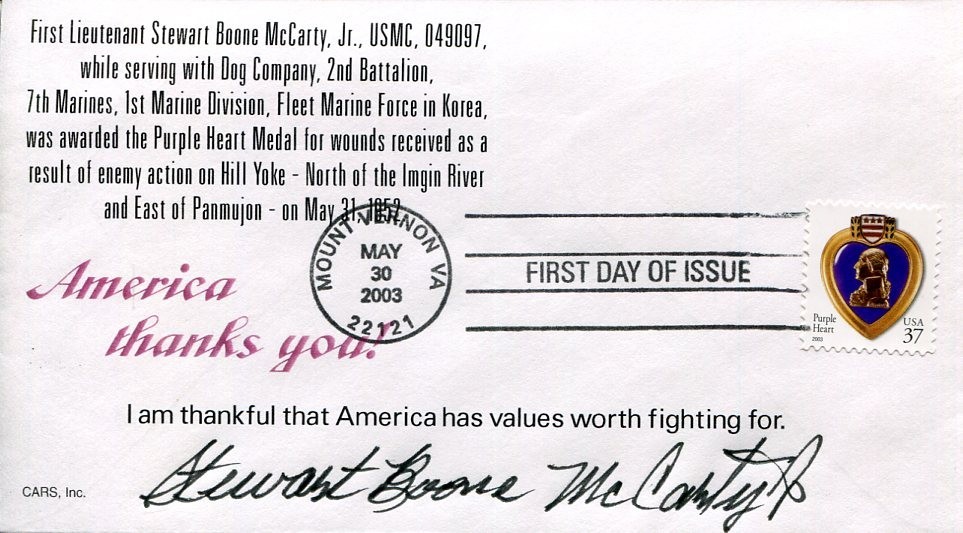 First Lieutenant Stewart Boone McCarty, Jr., USMC, 049097,
while serving with Dog Company, 2nd Battalion,
7th Marines, 1st Marine Division, Fleet Marine Force in Korea,
was awarded the Purple Heart Medal for wounds received as a
result of enemy action on Hill Yoke - North of the Imgin River
and East of Panmujon - on May 31, 1952
MOUNT VERNON VA
MAY
30
2003
22121
FIRST DAY OF ISSUE
Purple
Heart
2003
USA
37
America
thanks you!
I am thankful that America has values worth fighting for.
Stewart Boone McCarty Jr
CARS, Inc.